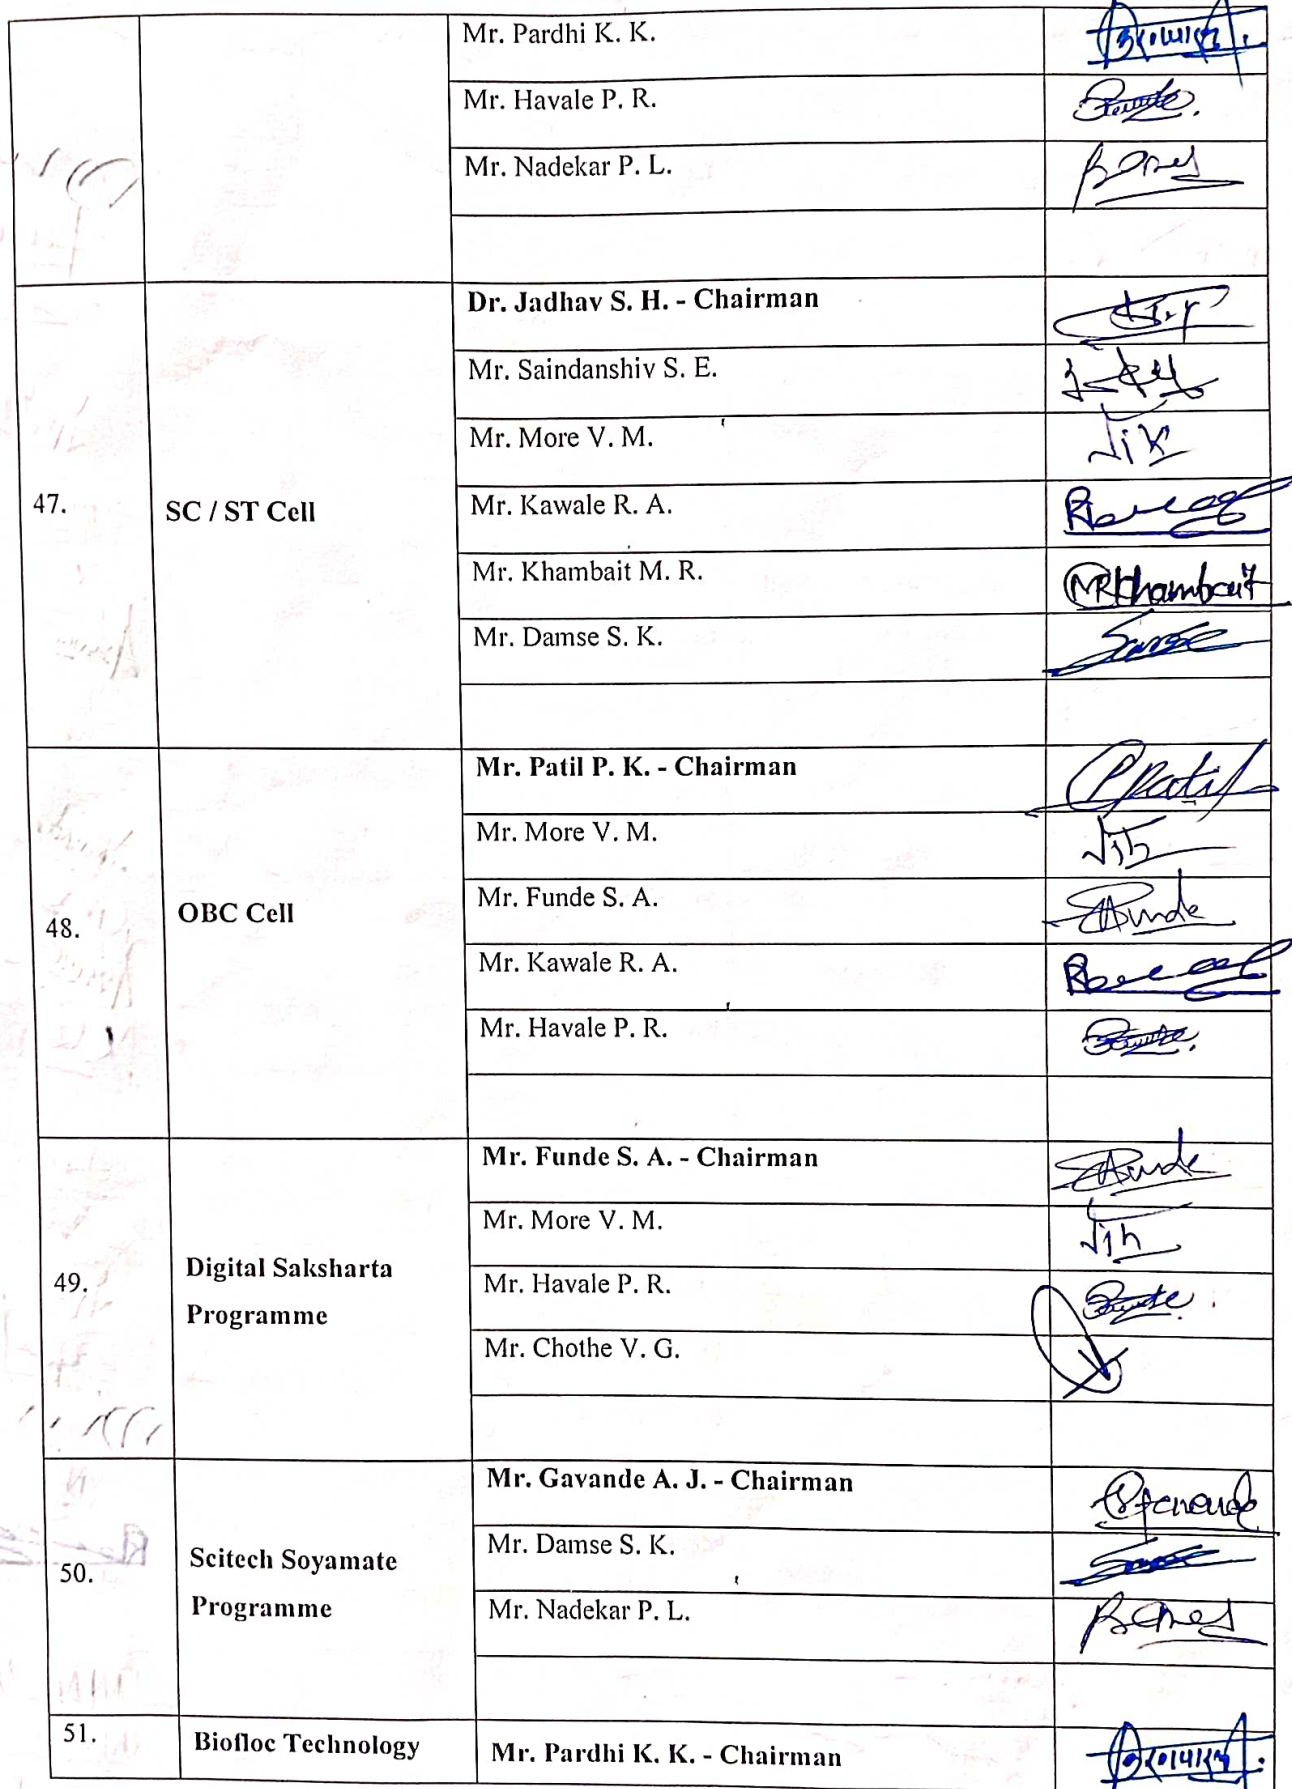 Mr. Pardhi K. K.
Mr. Havale P. R.
Mr. Nadekar P. L.
47.
SC / ST Cell
Dr. Jadhav S. H. - Chairman
Mr. Saindanshiv S. E.
Mr. More V. M.
Mr. Kawale R. A.
Mr. Khambait M. R.
MRKhambait
Mr. Damse S. K.
48.
OBC Cell
Mr. Patil P. K. - Chairman
PPatil
Mr. More V. M.
Mr. Funde S. A.
SAFunde
Mr. Kawale R. A.
Mr. Havale P. R.
49.
Digital Saksharta
Programme
Mr. Funde S. A. - Chairman
SAFunde
Mr. More V. M.
Mr. Havale P. R.
Mr. Chothe V. G.
50.
Scitech Soyamate
Programme
Mr. Gavande A. J. - Chairman
Mr. Damse S. K.
Mr. Nadekar P. L.
51.
Biofloc Technology
Mr. Pardhi K. K. - Chairman